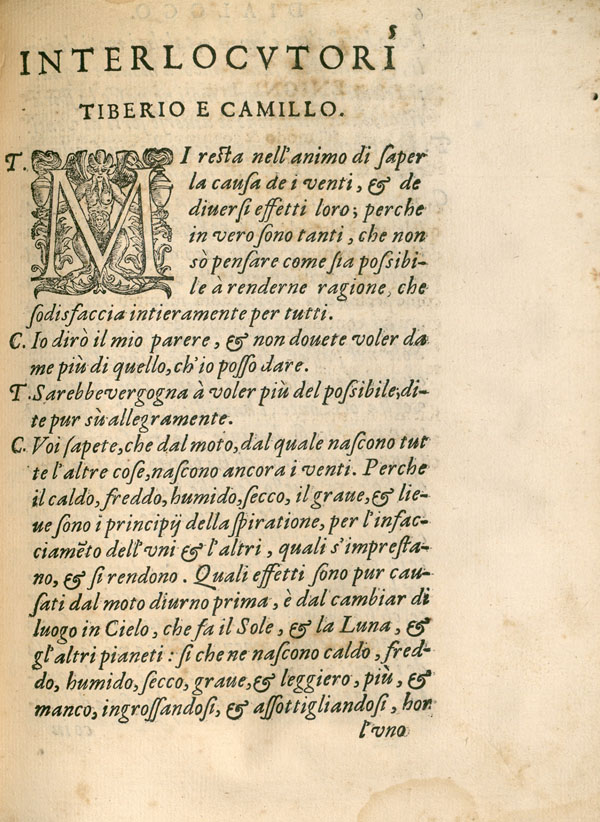 INTERLOCVTORI
TIBERIO E CAMILLO.
T. MI resta nell'animo di ſaper
la cauſa de i venti, & de
diuerſi effetti loro; perche
in vero ſono tanti, che non
sò penſare come ſia poſſibi-
le à renderne ragione, che
ſodisfaccia intieramente per tutti.
C. Io dirò il mio parere, & non douete voler da
me più di quello, ch'io poſſo dare.
T. Sarebbe vergogna à voler più del poſſibile; di-
te pur sù allegramente.
C. Voi ſapete, che dal moto, dal quale naſcono tut
te l'altre coſe, naſcono ancora i venti. Perche
il caldo, freddo, humido, ſecco, il graue, & lie-
ue ſono i principij della ſpiratione, per l'infac-
ciamẽto dell'vni & l'altri, quali s'impreſta-
no, & ſi rendono. Quali effetti ſono pur cau-
ſati dal moto diurno prima, è dal cambiar di
luogo in Cielo, che fa il Sole, & la Luna, &
gl'altri pianeti: ſi che ne naſcono caldo, fred-
do, humido, ſecco, graue, & leggiero, più, &
manco, ingroſſandoſi, & aſſottigliandoſi, hor
l'vno